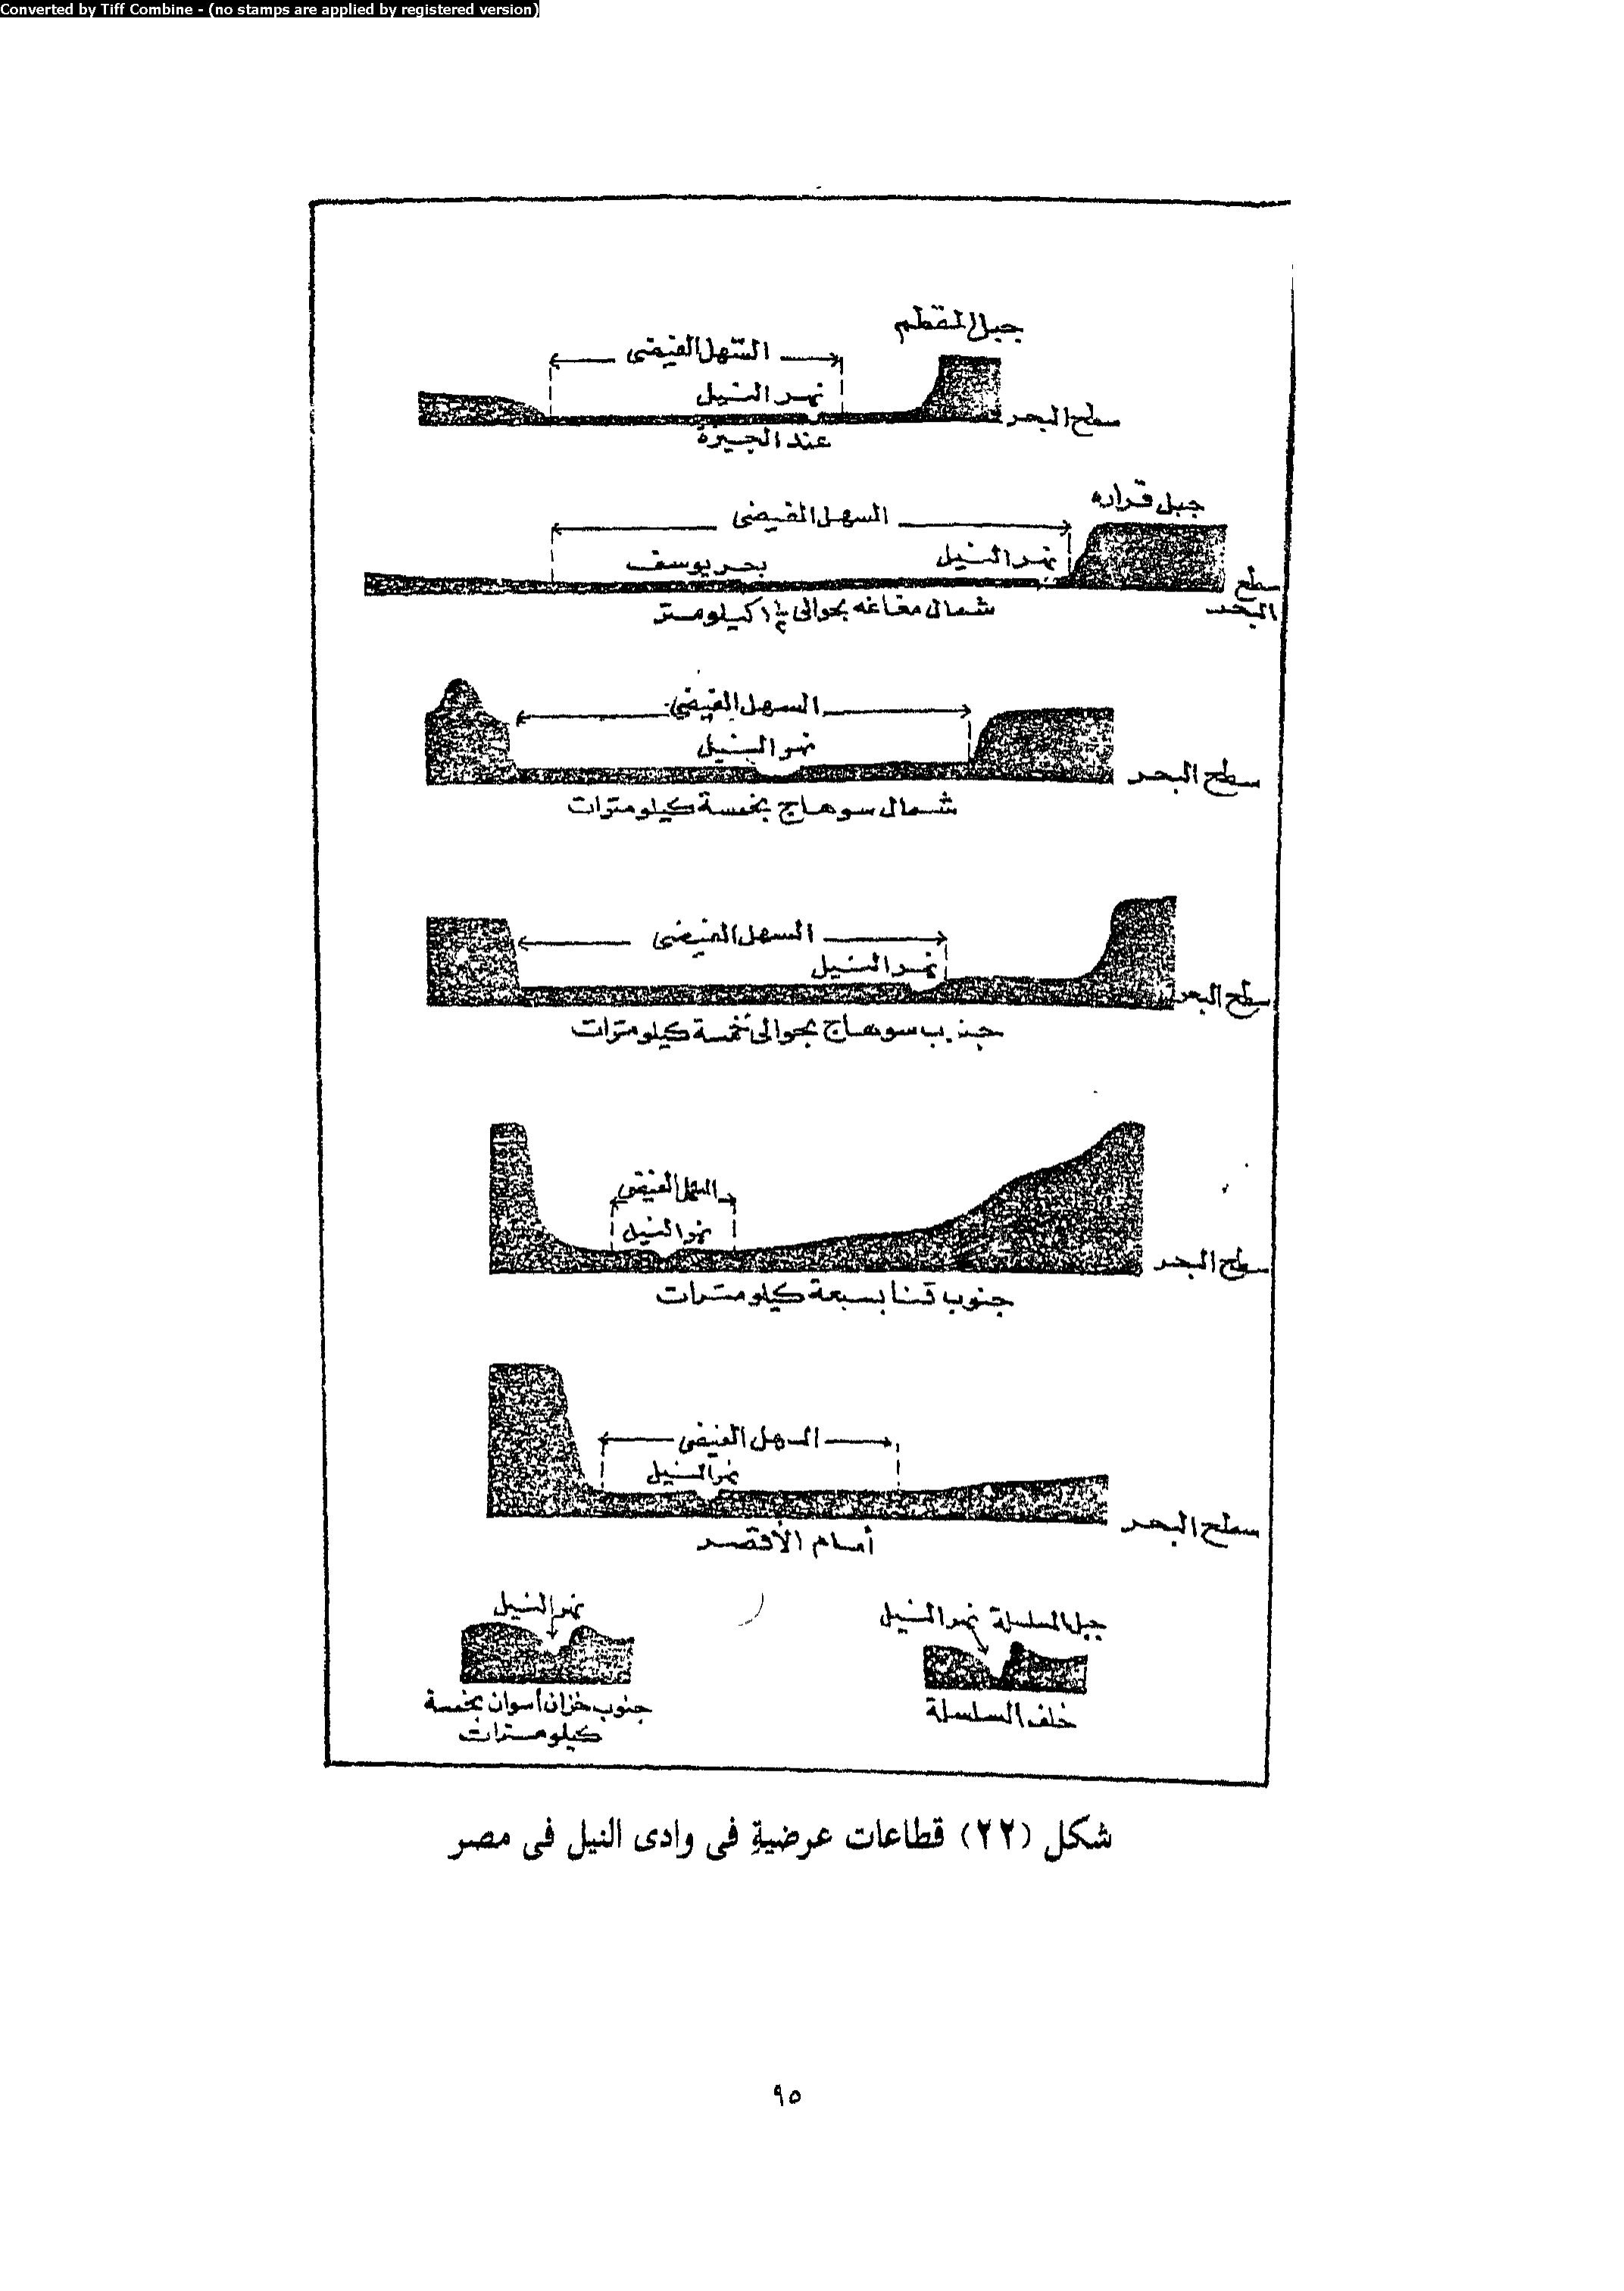 Converted by Tiff Combine - (no stamps are applied by registered version)
جبل المقطم
السهل الفيضى
نهر النيل
سطح البحر
عند الجيزة
جبل قراره
السهل الفيضى
نهر النيل
بحر يوسف
سطح البحر
شمال مغاغه بحوالى ١½ كيلومتر
السهل الفيضى
نهر النيل
سطح البحر
شمال سوهاج بخمسة كيلو مترات
السهل الفيضى
نهر النيل
سطح البحر
جنوب سوهاج بحوالى خمسة كيلو مترات
السهل الفيضى
نهر النيل
سطح البحر
جنوب قنا بسبعة كيلو مترات
السهل الفيضى
نهر النيل
سطح البحر
أمام الأقصر
جبل السلسلة نهر النيل
خلف السلسلة
نهر النيل
جنوب خزان أسوان بخمسة
كيلو مترات
شكل (٢٢) قطاعات عرضية فى وادى النيل فى مصر
٩٥